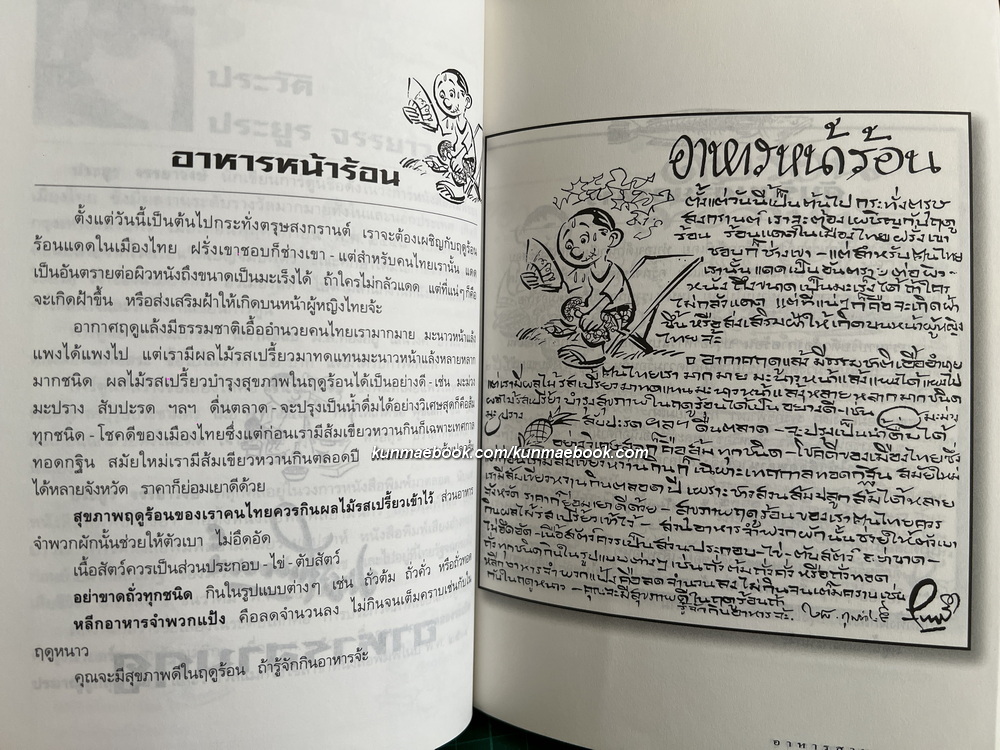 อาหารหน้าร้อน
ตั้งแต่วันนี้เป็นต้นไปกระทั่งตรุษสงกรานต์ เราจะต้องเผชิญกับฤดูร้อน
ร้อนแดดในเมืองไทย ฝรั่งเขาชอบก็ช่างเขา - แต่สำหรับคนไทยเรานั้น แดด
เป็นอันตรายต่อผิวหนังถึงขนาดเป็นมะเร็งได้ ถ้าใครไม่กลัวแดด แต่ที่แน่ๆ ก็คือ
จะเกิดฝ้าขึ้น หรือส่งเสริมฝ้าให้เกิดบนหน้าผู้หญิงไทยจ้ะ
อากาศฤดูแล้งมีธรรมชาติเอื้ออำนวยคนไทยเรามากมาย มะนาวหน้าแล้ง
แพงได้แพงไป แต่เรามีผลไม้รสเปรี้ยวมาทดแทนมะนาวหน้าแล้งหลายหลาก
มากชนิด ผลไม้รสเปรี้ยวบำรุงสุขภาพในฤดูร้อนได้เป็นอย่างดี - เช่น มะม่วง
มะปราง สับปะรด ฯลฯ ดื่นตลาด - จะปรุงเป็นน้ำดื่มได้อย่างวิเศษสุดก็คือส้ม
ทุกชนิด - โชคดีของเมืองไทยซึ่งแต่ก่อนเรามีส้มเขียวหวานกินก็เฉพาะเทศกาล
ทอดกฐิน สมัยใหม่เรามีส้มเขียวหวานกินตลอดปี
ได้หลายจังหวัด ราคาก็ย่อมเยาดีด้วย
สุขภาพฤดูร้อนของเราคนไทยควรกินผลไม้รสเปรี้ยวเข้าไว้ ส่วนอาหาร
จำพวกผักนั้นช่วยให้ตัวเบา ไม่อึดอัด
เนื้อสัตว์ควรเป็นส่วนประกอบ - ไข่ - ตับสัตว์
อย่าขาดถั่วทุกชนิด กินในรูปแบบต่างๆ เช่น ถั่วต้ม ถั่วคั่ว หรือถั่วทอด
หลีกอาหารจำพวกแป้ง คือลดจำนวนลง ไม่กินจนเต็มคราบเช่นกับใน
ฤดูหนาว
คุณจะมีสุขภาพดีในฤดูร้อน ถ้ารู้จักกินอาหารจ้ะ
อาหารหน้าร้อน
ตั้งแต่วันนี้เป็นต้นไป กระทั่งตรุษ
สงกรานต์ เราจะต้องเผชิญกับฤดู
ร้อน ร้อนแดดในเมืองไทยฝรั่งเขา
ชอบก็ช่างเขา - แต่สำหรับคนไทย
เรานั้น แดดเป็นอันตราย ต่อผิว-
หนัง ถึงขนาดเป็นมะเร็งได้ ถ้าใคร
ไม่กลัวแดด แต่ที่แน่ๆ ก็คือ จะเกิดฝ้า
ขึ้น หรือส่งเสริมฝ้าให้เกิดบนหน้าผู้หญิง
ไทยจ้ะ
อากาศฤดูแล้ง มีธรรมชาติเอื้ออำนวย
คนไทยเรามากมาย มะนาวหน้าแล้งแพงได้แพงไป
แต่เรามีผลไม้รสเปรี้ยวมาทดแทนมะนาวหน้าแล้งหลายหลากมากชนิด
ผลไม้รสเปรี้ยวบำรุงสุขภาพในฤดูร้อนได้เป็นอย่างดี - เช่น มะม่วง
มะปราง สับปะรด ฯลฯ ดื่นตลาด - จะปรุงเป็นน้ำดื่มได้
อย่างวิเศษสุดก็คือส้มทุกชนิด - โชคดีของเมืองไทยซึ่ง
kunmaebook.com/kunmaebook.com
แต่ก่อนเรามีส้มเขียวหวานกินก็เฉพาะเทศกาลทอดกฐิน สมัยใหม่
เรามีส้มเขียวหวานกินตลอดปี เพราะชาวสวนส้มปลูกส้มได้หลาย
จังหวัด ราคาก็ย่อมเยาดีด้วย - สุขภาพฤดูร้อนของเราคนไทยควร
กินผลไม้รสเปรี้ยวเข้าไว้ - ส่วนอาหารจำพวกผักนั้นช่วยให้ตัวเบา
ไม่อึดอัด - เนื้อสัตว์ควรเป็นส่วนประกอบ - ไข่ - ตับสัตว์ อย่าขาด-
ถั่วทุกชนิดกินในรูปแบบต่างๆ เช่นถั่วต้มถั่วคั่ว หรือถั่วทอด
หลีกอาหารจำพวกแป้งคือลดจำนวนลงไม่กินจนเต็มคราบเช่น
กับในฤดูหนาว - คุณจะมีสุขภาพดีในฤดูร้อนถ้า
รู้จักกินอาหารจ้ะ